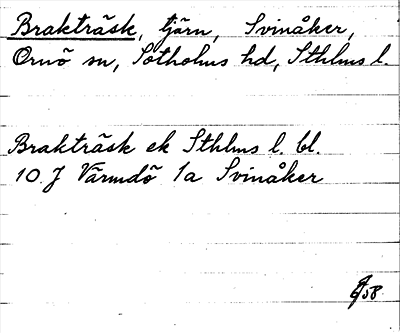 Brakträsk, tjärn, Svinåker,
Ornö sn, Sotholms hd, Sthlms l.
Brakträsk ek Sthlms l. bl.
10 J Värmdö 1a Svinåker